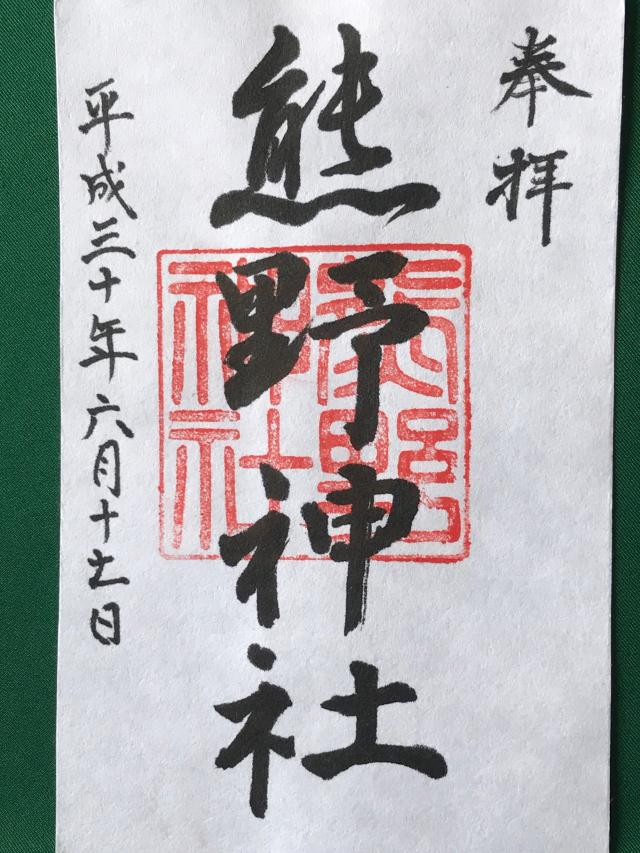 奉拝
熊野神社
神社
平成三十年六月十日